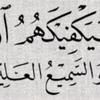 فَسَيَكْفِيكَهُمُ
وَهُوَ السَّمِيعُ الْعَلِيمُ